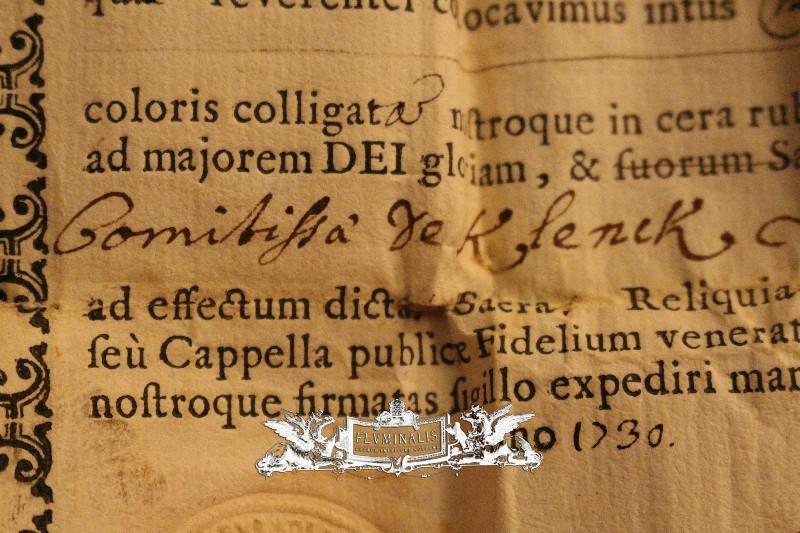 reverenter ocavimus intus
coloris colligatâ nostroque in cera rub
ad majorem DEI gloriam, & ſuorum Sa
Comitiſsa de Klenck
ad effectum dictas Sacras Reliquia
ſeù Cappella publicæ Fidelium venerat
noſtroque firmatas ſigillo expediri man
FLVMINALIS
no 1730.